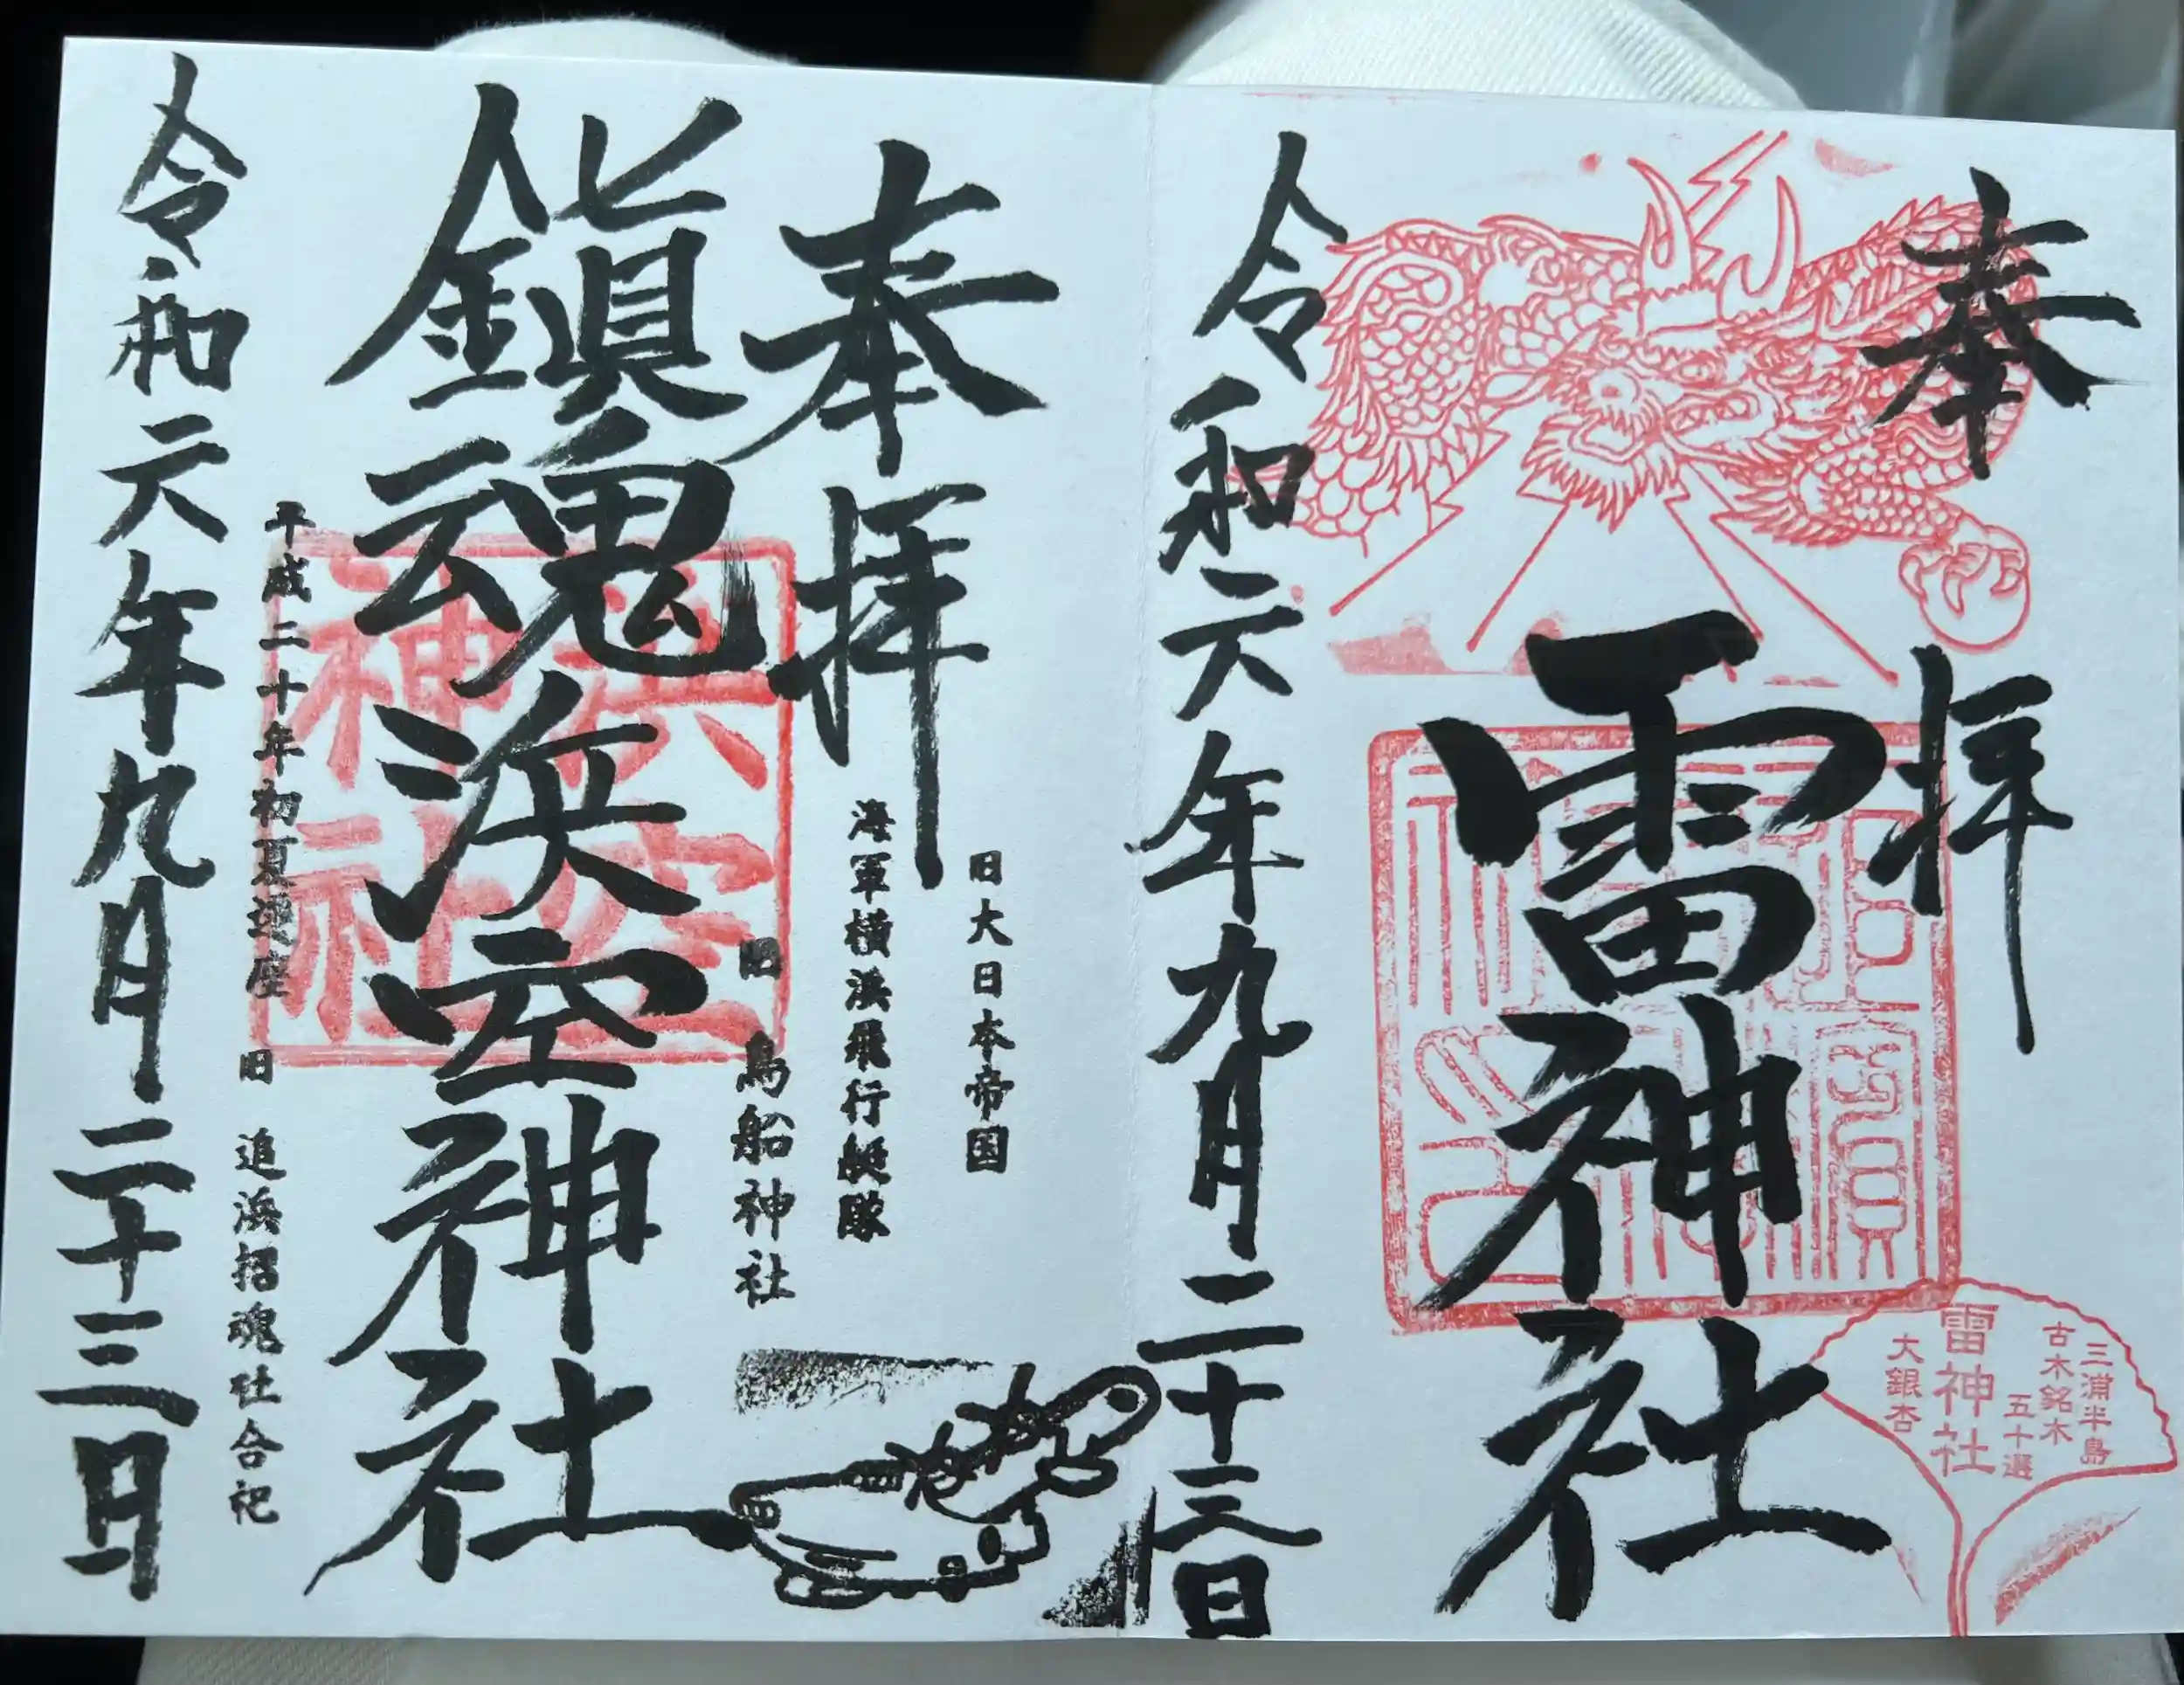 奉拝
雷神社
令和六年九月二十三日
三浦半島
古木銘木
五十選
雷神社
大銀杏
奉拝
旧大日本帝国
海軍横浜飛行艇隊
旧 鳥船神社
鎮魂浜空神社
浜空
神社
平成二十年初夏遷座
旧 追浜招魂社合祀
令和六年九月二十三日